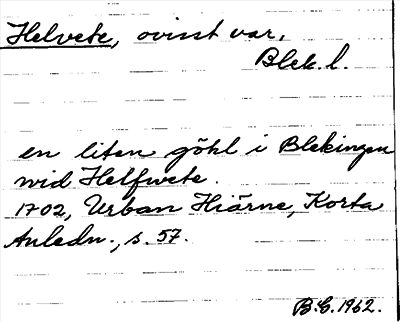 Helvete, ovisst var.
Blek. l.
en liten göhl i Blekingen
wid Helfwete.
1702, Urban Hiärne, Korta
Anledn., s. 57.
B.E. 1962.